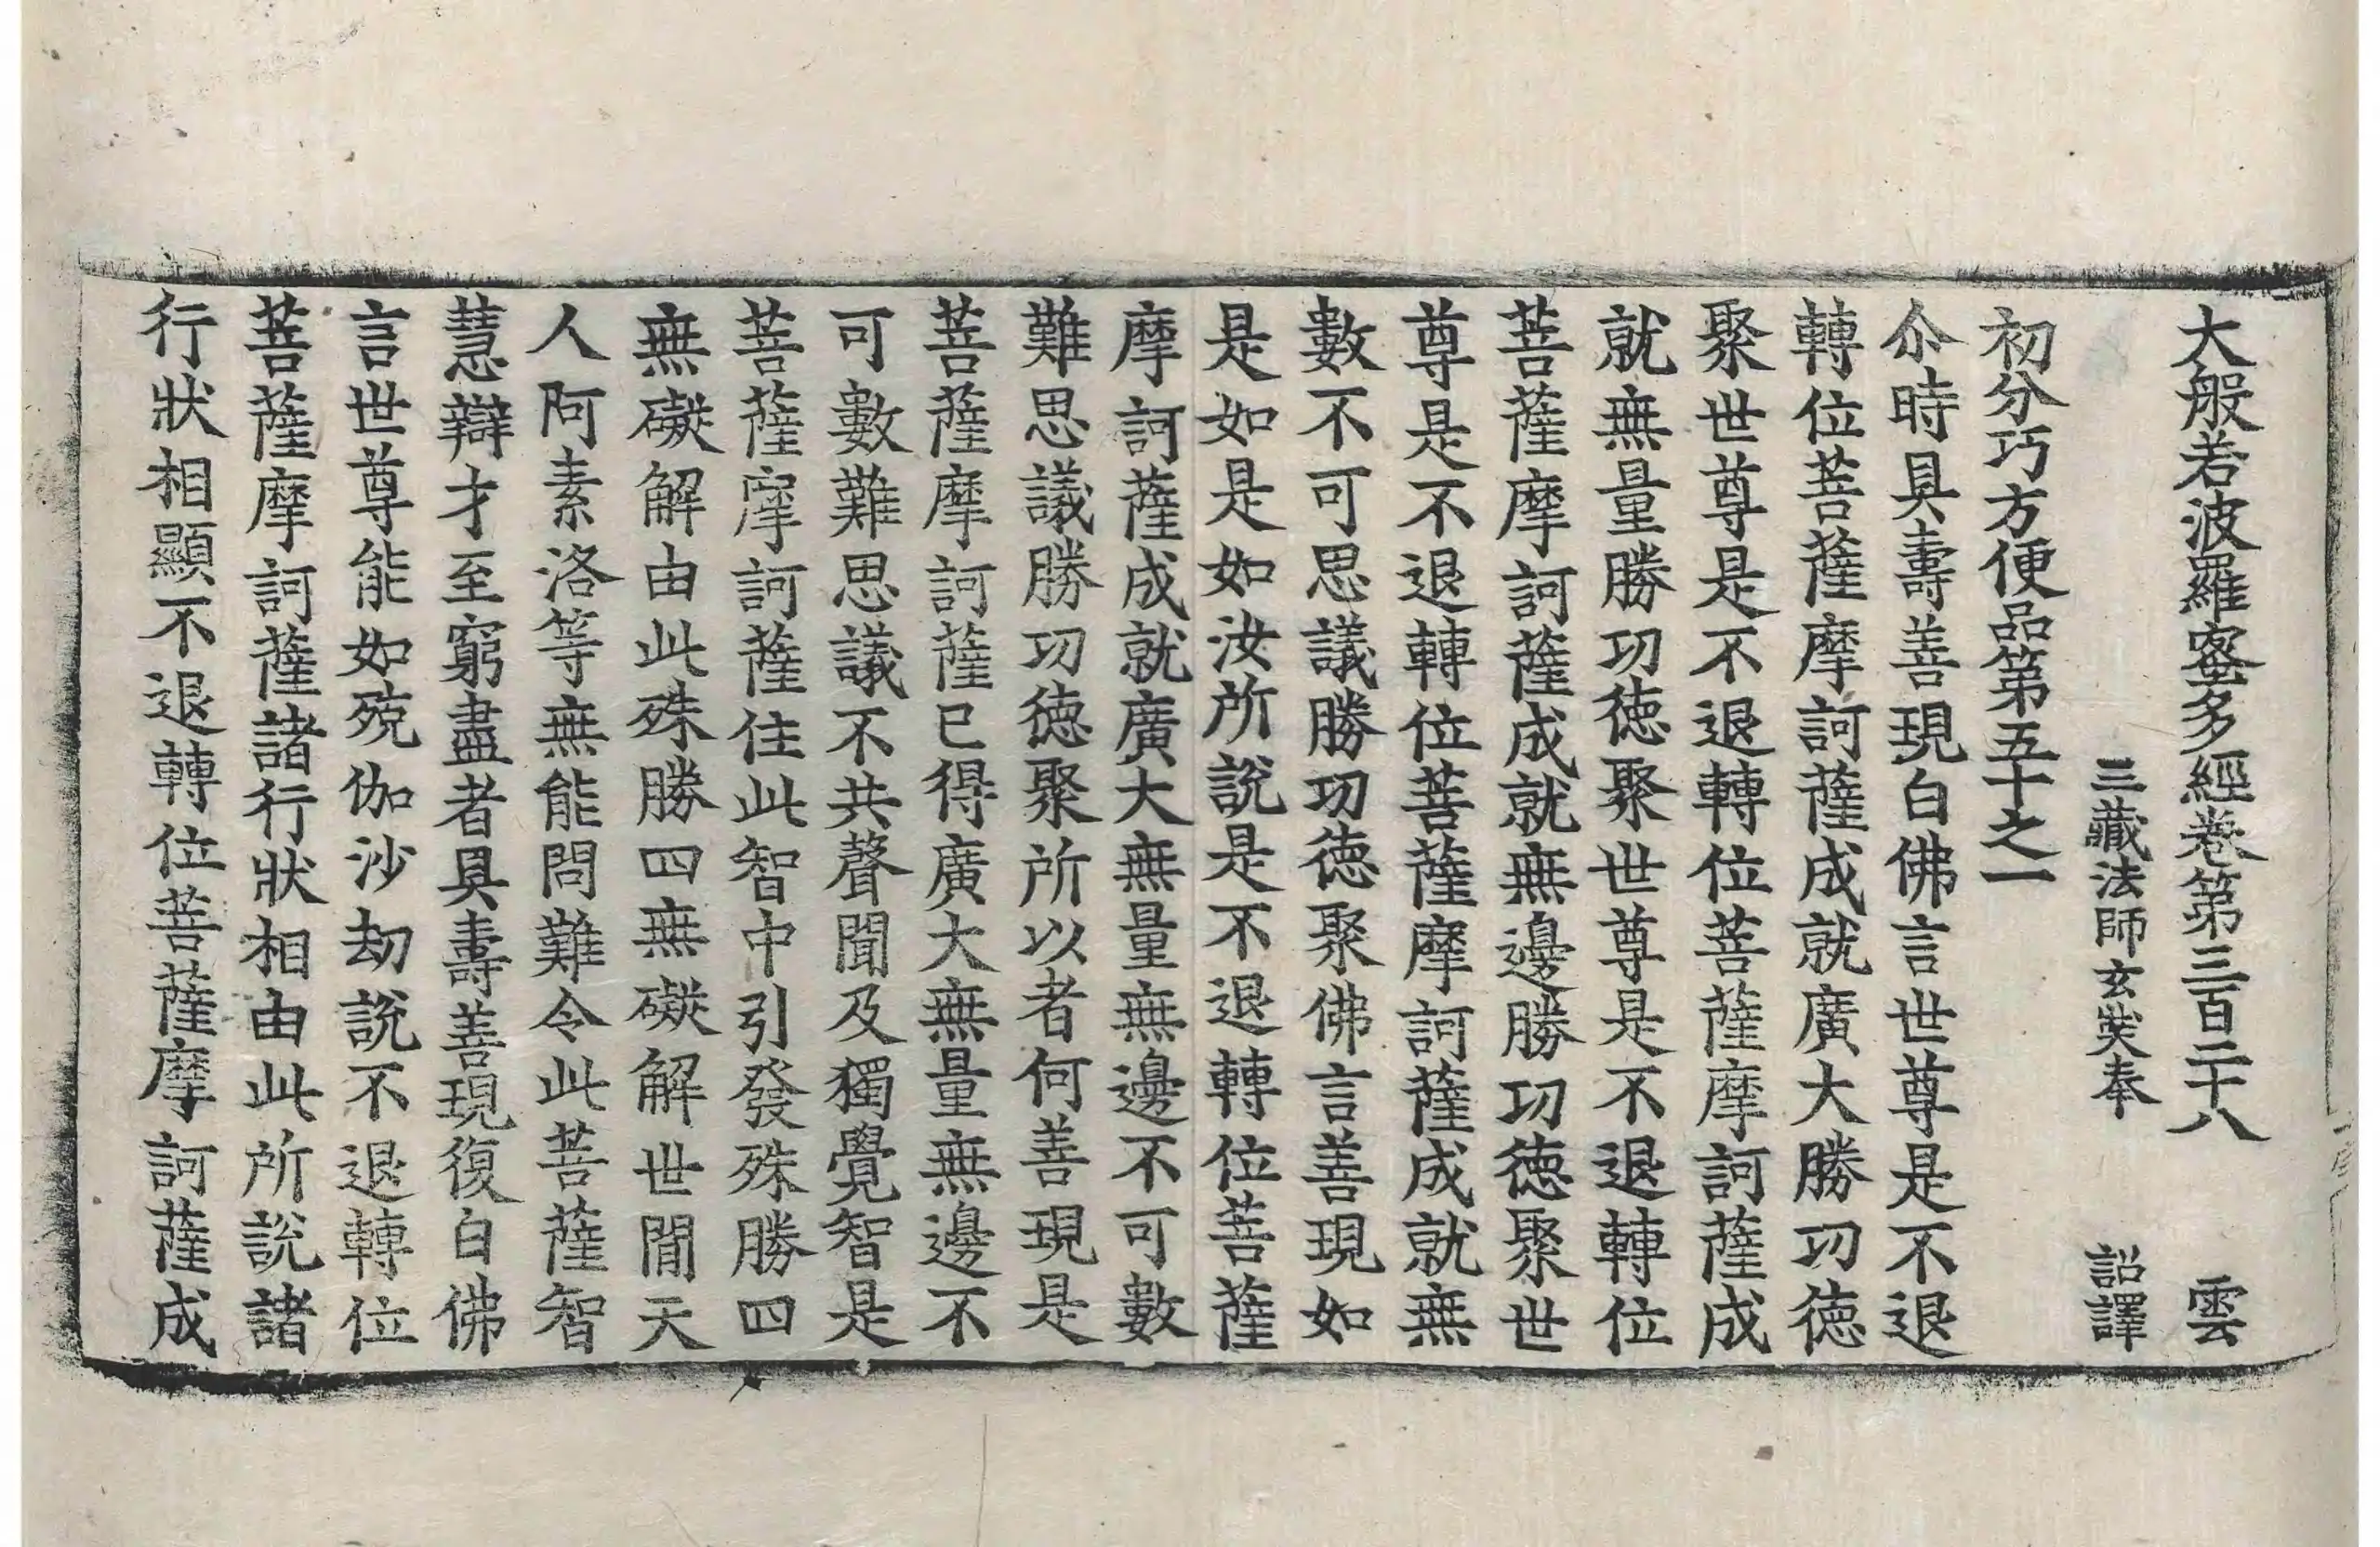 大般若波羅蜜多經卷第三百二十八 雲
三藏法師玄奘奉 詔譯
初分巧方便品第五十之一
尒時具壽善現白佛言世尊是不退
轉位菩薩摩訶薩成就廣大勝功徳
聚世尊是不退轉位菩薩摩訶薩成
就無量勝功徳聚世尊是不退轉位
菩薩摩訶薩成就無邊勝功徳聚世
尊是不退轉位菩薩摩訶薩成就無
數不可思議勝功徳聚佛言善現如
是如是如汝所說是不退轉位菩薩
摩訶薩成就廣大無量無邊不可數
難思議勝功徳聚所以者何善現是
菩薩摩訶薩已得廣大無量無邊不
可數難思議不共聲聞及獨覺智是
菩薩摩訶薩住此智中引發殊勝四
無礙解由此殊勝四無礙解世間天
人阿素洛等無能問難令此菩薩智
慧辯才至窮盡者具壽善現復白佛
言世尊能如殑伽沙劫說不退轉位
菩薩摩訶薩諸行狀相由此所說諸
行狀相顯不退轉位菩薩摩訶薩成